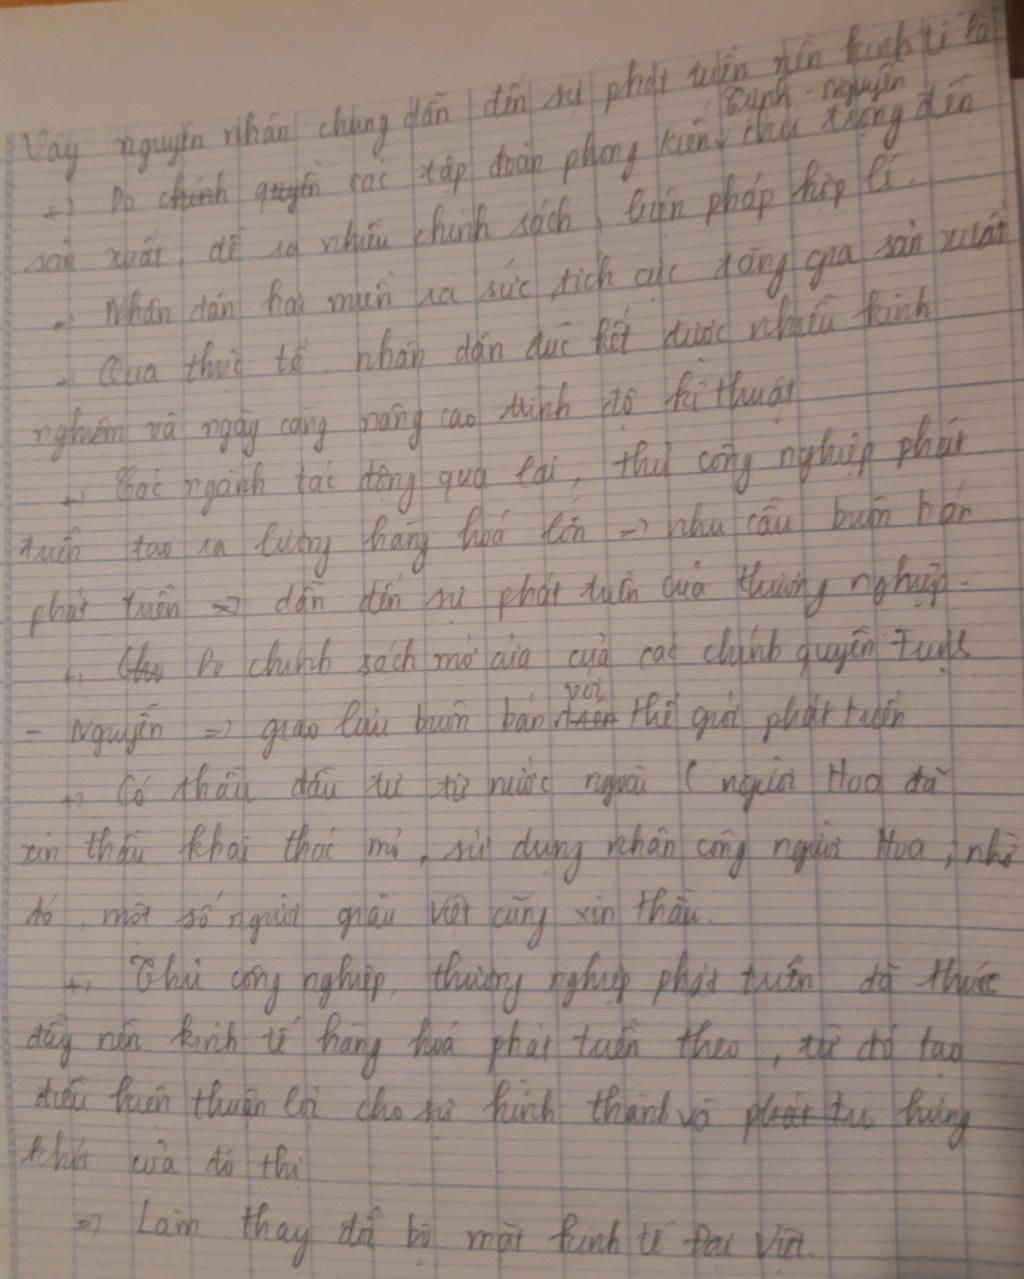 Vậy nguyên nhân chung dẫn đến sự phát triển nền kinh tế là
+, Do chính quyền các tập đoàn phong kiến Trịnh - Nguyễn chú trọng đến
sản xuất, đề ra nhiều chính sách, biện pháp hợp lí.
+, Nhân dân hai miền ra sức, tích cực tăng gia sản xuất
+, Qua thực tế nhân dân đúc kết được nhiều kinh
nghiệm và ngày càng nâng cao trình độ kĩ thuật
+, Các ngành tác động qua lại, thủ công nghiệp phát
triển tạo ra lượng hàng hoá lớn => nhu cầu buôn bán
phát triển => dẫn đến sự phát triển của thương nghiệp.
+, Do chính sách mở cửa của các chính quyền Trịnh
- Nguyễn => giao lưu buôn bán với thế giới phát triển
+, Có thầu đầu tư từ nước ngoài ( người Hoa đã
xin thầu khai thác mỏ, sử dụng nhân công người Hoa, nhờ
đó, một số người giàu Việt cũng xin thầu.
+, Thủ công nghiệp, thương nghiệp phát triển đã thúc
đẩy nền kinh tế hàng hoá phát triển theo, từ đó tạo
điều kiện thuận lợi cho sự hình thành và phát tri hưng
khởi của đô thị
=> Làm thay đổi bộ mặt kinh tế Đại Việt.